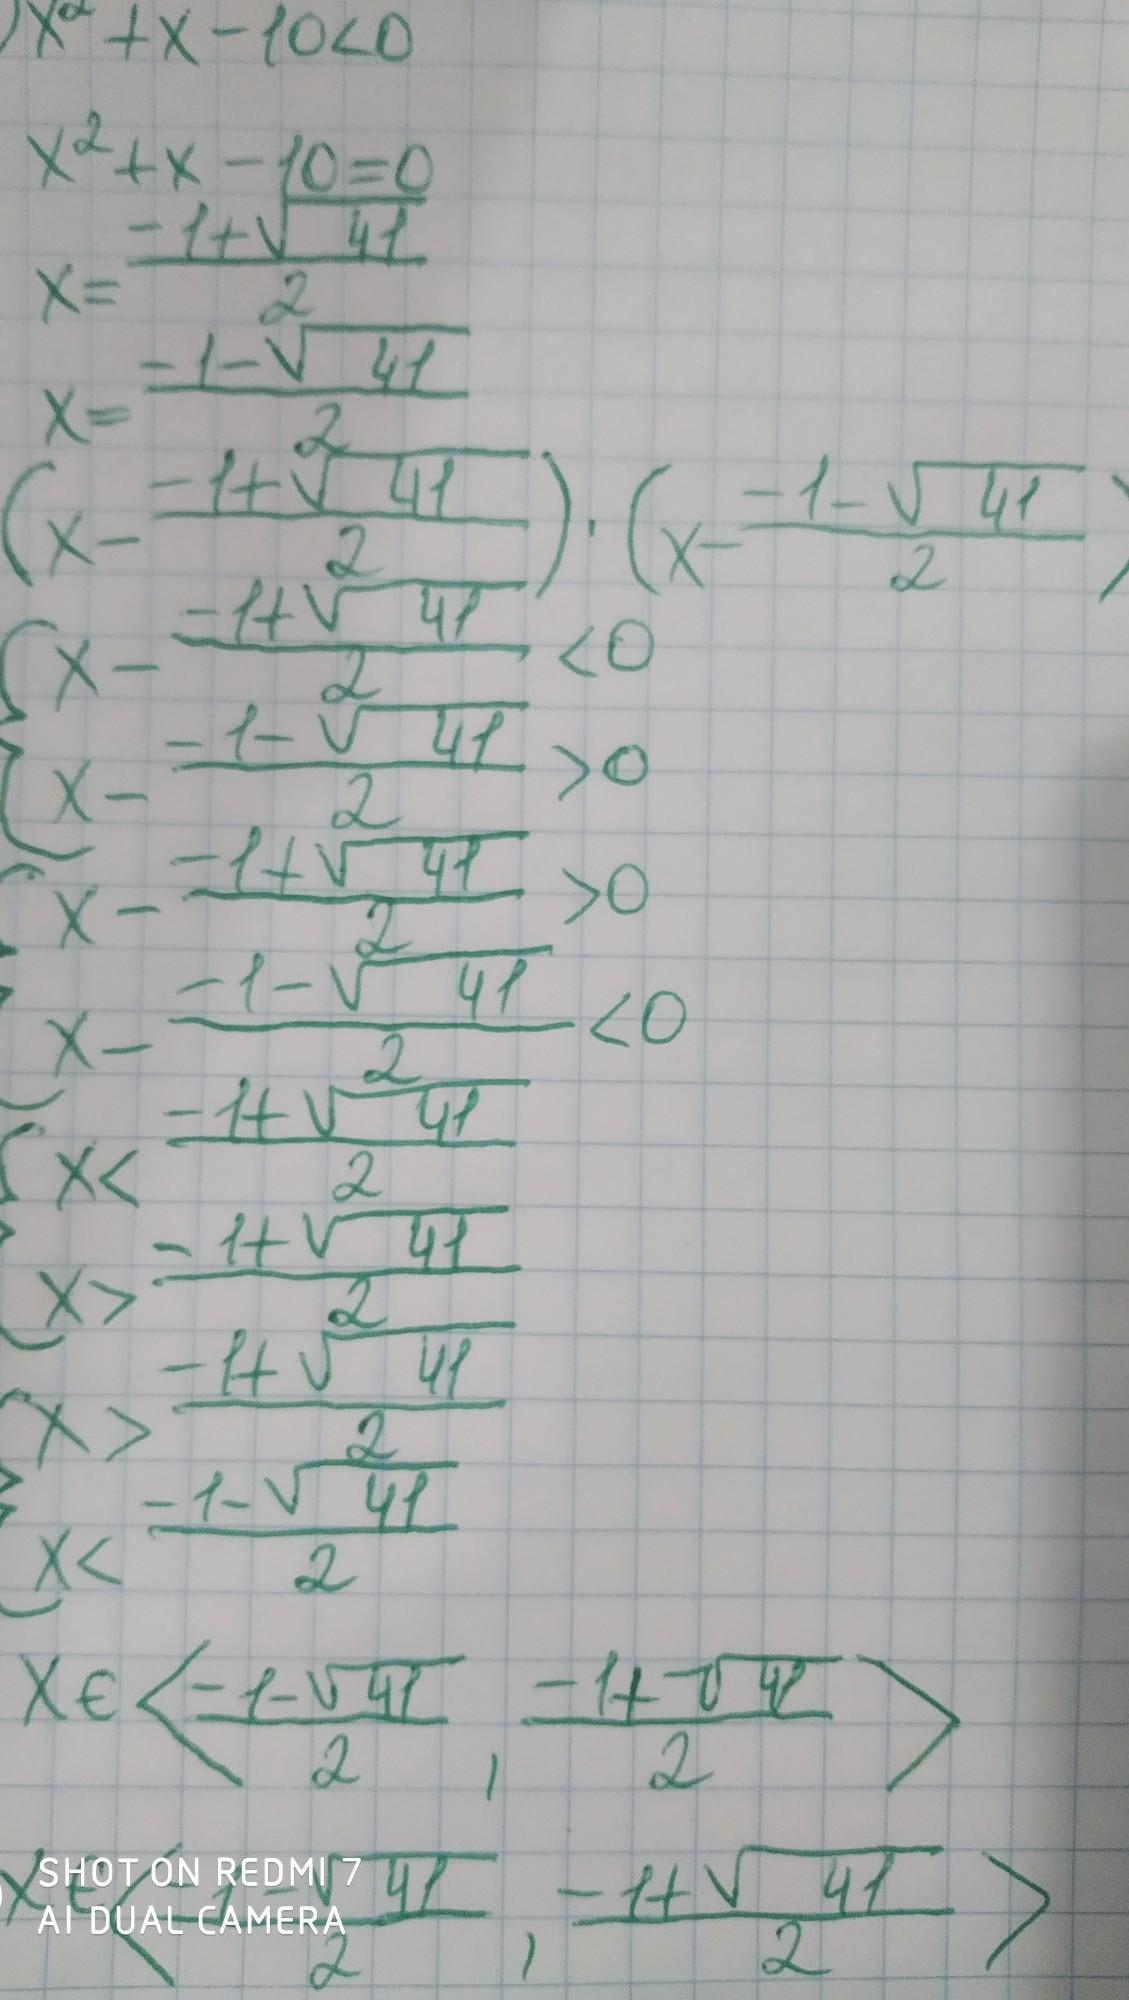 )x²+x-10<0
x²+x-10=0
x=(-1+√41)/2
x=(-1-√41)/2
(x-(-1+√41)/2)·(x-(-1-√41)/2)
{x-(-1+√41)/2<0
x-(-1-√41)/2>0
{x-(-1+√41)/2>0
x-(-1-√41)/2<0
{x<(-1+√41)/2
x>-(1+√41)/2
{x>(-1+√41)/2
x<(-1-√41)/2
x∈<(-1-√41)/2, (-1+√41)/2>
x∈<(-1-√41)/2, (-1+√41)/2>
SHOT ON REDMI 7
AI DUAL CAMERA